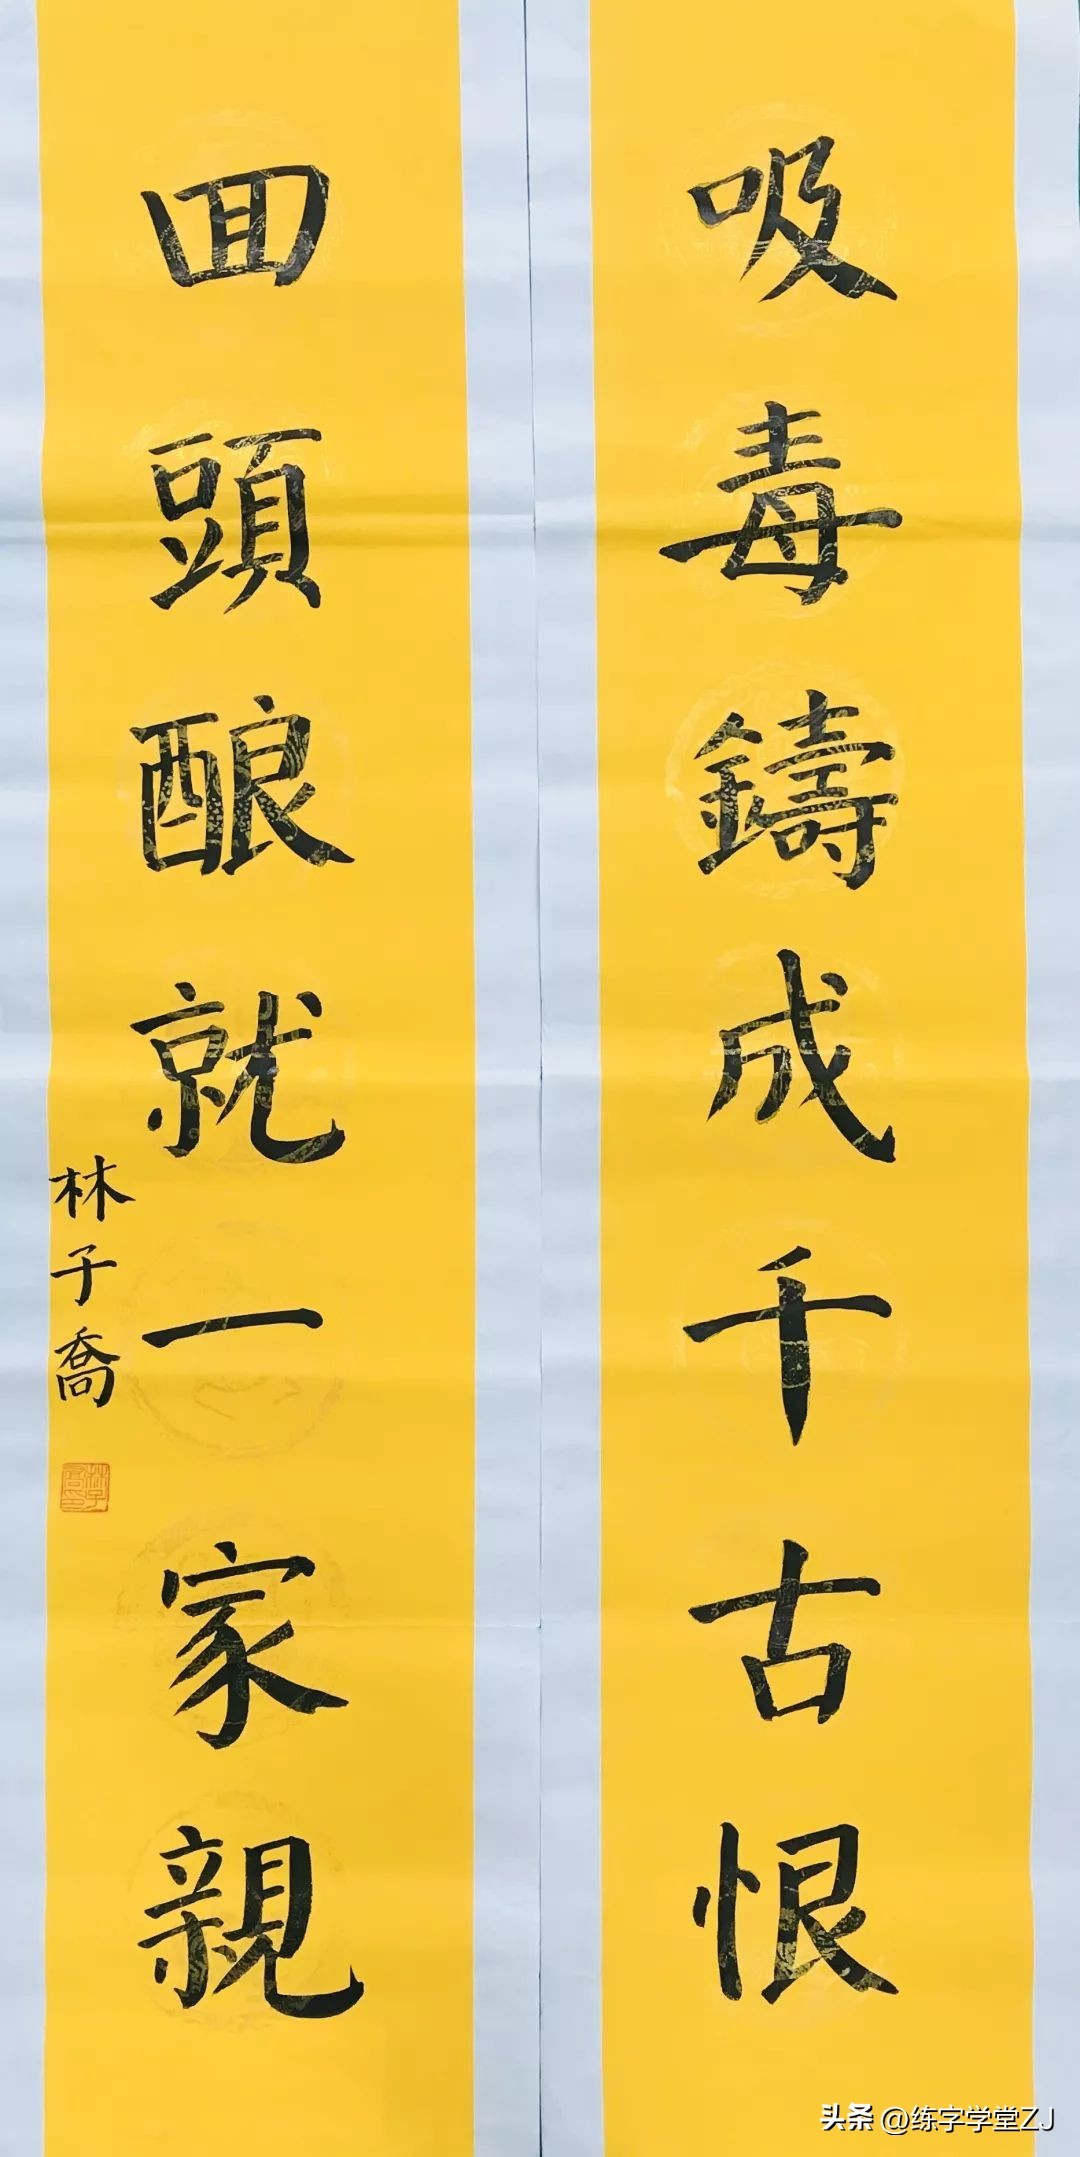 吸毒鑄成千古恨
回頭酿就一家親
林子喬
头条 @练字学堂ZJ